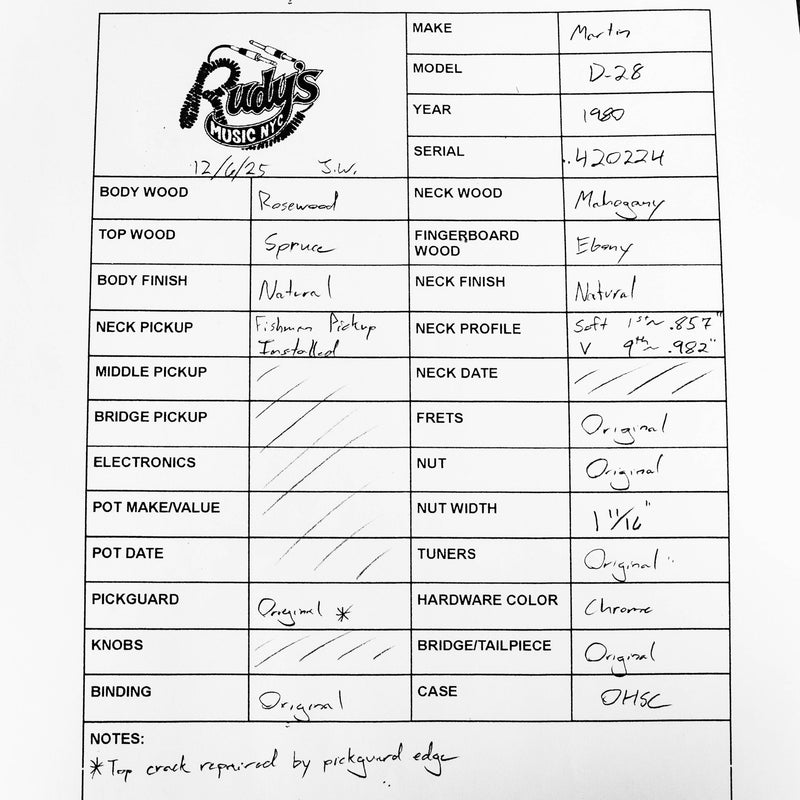 Rudy's
MUSIC NYC
12/6/25 J.W.
MAKE Martin
MODEL D-28
YEAR 1980
SERIAL 420224
BODY WOOD Rosewood NECK WOOD Mahogany
TOP WOOD Spruce FINGERBOARD WOOD Ebony
BODY FINISH Natural NECK FINISH Natural
NECK PICKUP Fishman Pickup Installed NECK PROFILE Soft V 1st~ .857" 9th~ .982"
MIDDLE PICKUP NECK DATE
BRIDGE PICKUP FRETS Original
ELECTRONICS NUT Original
POT MAKE/VALUE NUT WIDTH 1 11/16"
POT DATE TUNERS Original
PICKGUARD Original * HARDWARE COLOR Chrome
KNOBS BRIDGE/TAILPIECE Original
BINDING Original CASE OHSC
NOTES:
*Top crack repaired by pickguard edge